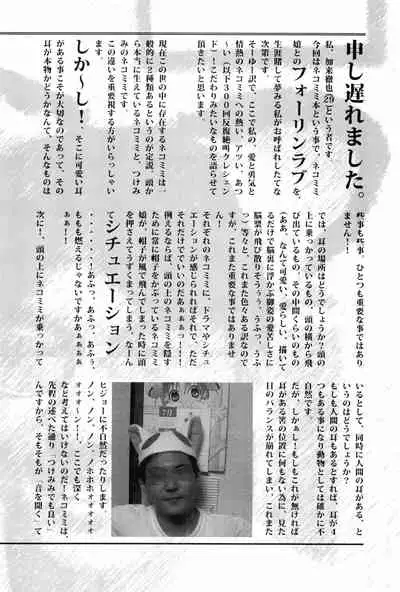 申し遅れました。
私、加来徹也(21)という者です。
今回はネコミミ本という事で、ネコミミ
娘とのフォーリンラブを、
生涯賭して夢みる私がお呼ばれしたてな
次第です。
そーゆーワケで、ここで私の、愛と勇気と
情熱のネコミミへの熱い、アツい、あつ
～い(以下300回反復絶叫クレシェン
ド)!こだわりみたいなものを語らせて
頂きたいと思います。
現在この世の中に存在するネコミミは
一般的に2種類あるというのが定説。頭か
ら本当に生えているネコミミと、つけみ
みのネコミミです。
この違いを重要視する方がいらっしゃい
ます。
しか～し! そこに可愛い耳
がある事こそが大切なのであって、その
耳が本物かどうかなんて、そんなものは
些事も些事、ひとつも重要な事ではあり
ません!!
では、耳の場所はどうでしょうか?頭の
上に乗っかっているもの、頭の横から飛
び出ているもの、その中間くらいのもの
(ああ、なんて可愛い、愛らしい、描いて
るだけで脳裏に浮かぶ御姿の愛苦しさに
脳漿が飛び散りそうぅっ、うふっ、うふ
っ)等々と、これまた色々ある訳なので
すが、これまた重要な事ではありませ
ん!
それぞれのネコミミに、ドラマやシチュ
エーションが感じられればそれで、ただ
それだけでいいのだあぁぁぁっ!!!
例えるならば、頭の上のネコミミを隠す
ために常に帽子をかぶっているネコミミ
娘が、帽子が風で飛んでしまった時に頭
を押さえてうずくまってしまう、なーん
て シチュエーション
・・・・・!あふっ、あふっ、あふぅ、
ももも燃えるじゃないですかあぁぁぁぁ
あぁ!!
次に!頭の上にネコミミが乗っかって
いるとして、同時に人間の耳がある、と
いうのはどうでしょう?
もしも人間の耳もあるとすれば、耳が4
つもある事になり動物としては確かに不
自然です。
だが、しかぁし!もしこれが無ければ
耳がある筈の位置に何もない為に、見た
目のバランスが崩れてしまい、これまた
ヒジョーに不自然だったりします
ノン、ノン、ノン、ノホホホォォォォ
オォォォーン!!、ここでも深く
など考えてはいけないのだ!ネコミミは、
先程の述べた通り「つけみみでも良い」
んですから、そもそもが、「音を聞く」て